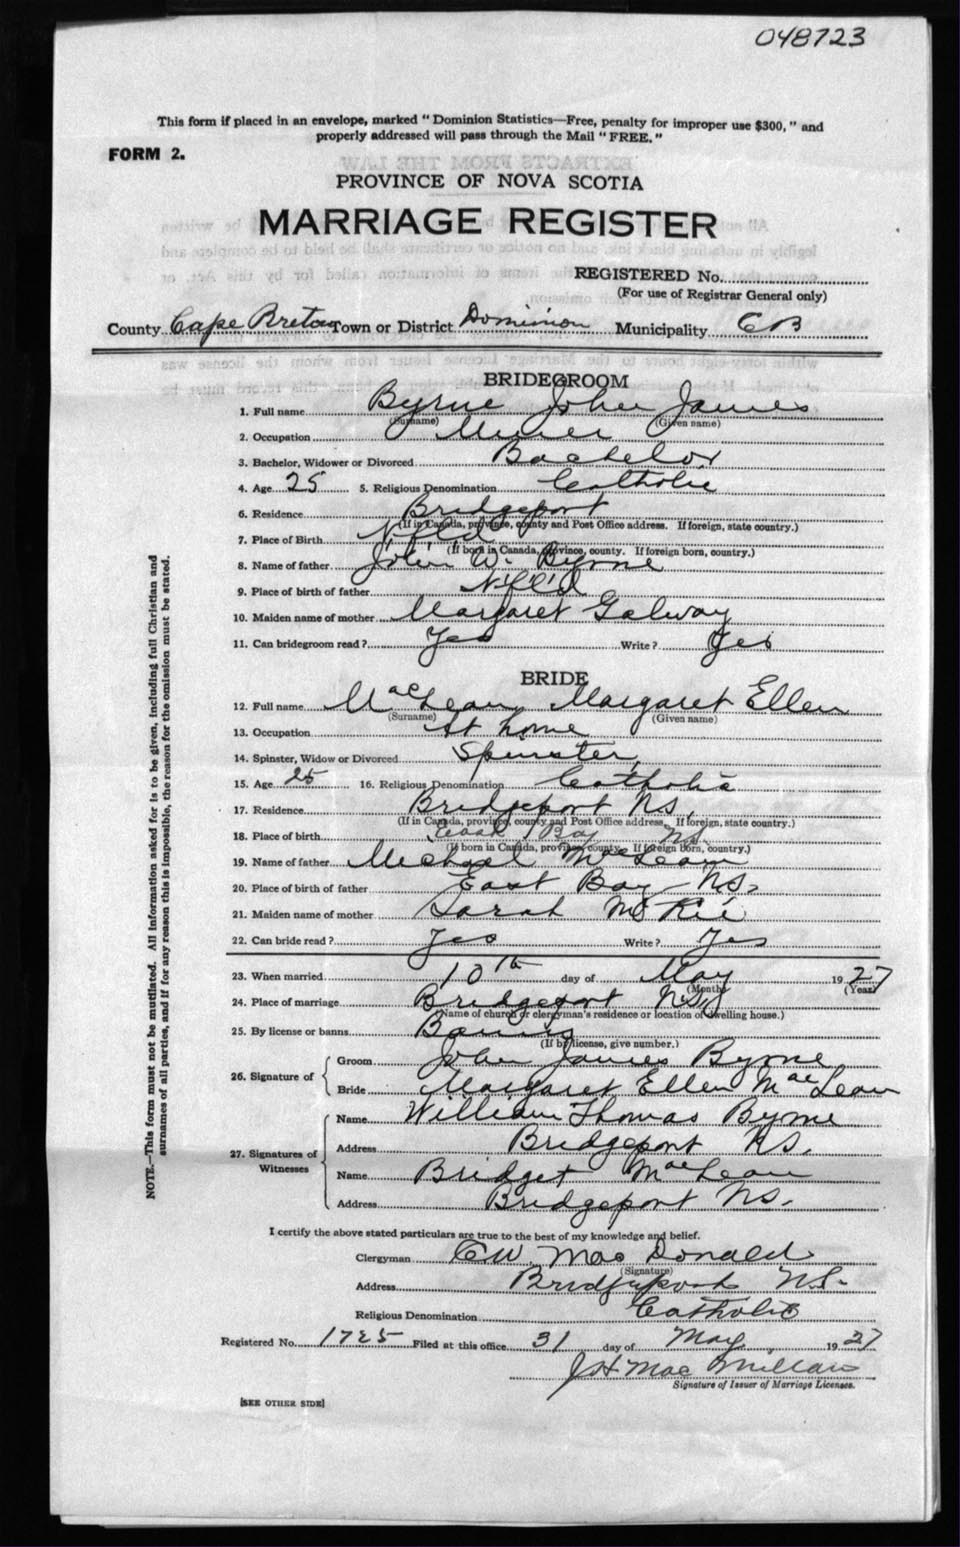 048723
This form if placed in an envelope, marked "Dominion Statistics—Free, penalty for improper use $300," and
properly addressed will pass through the Mail "FREE."
FORM 2.
PROVINCE OF NOVA SCOTIA
MARRIAGE REGISTER
REGISTERED No.
(For use of Registrar General only)
County Cape Breton Town or District Dominion Municipality CB
BRIDEGROOM
1. Full name Byrne John James
(Surname) (Given name)
2. Occupation Miner
3. Bachelor, Widower or Divorced Bachelor
4. Age 25 5. Religious Denomination Catholic
6. Residence Bridgeport
(If in Canada, province, county and Post Office address. If foreign, state country.)
7. Place of Birth Nfld
(If born in Canada, province, county. If foreign born, country.)
8. Name of father John W. Byrne
9. Place of birth of father Nfld
10. Maiden name of mother Margaret Galway
11. Can bridegroom read? Yes Write? Yes
BRIDE
12. Full name MacLean Margaret Ellen
(Surname) (Given name)
13. Occupation At home
14. Spinster, Widow or Divorced Spinster
15. Age 25 16. Religious Denomination Catholic
17. Residence Bridgeport N.S.
(If in Canada, province, county and Post Office address. If foreign, state country.)
18. Place of birth East Bay N.S.
(If born in Canada, province, county. If foreign born, country.)
19. Name of father Michael MacLean
20. Place of birth of father East Bay N.S.
21. Maiden name of mother Sarah
22. Can bride read? Yes Write? Yes
23. When married 10th day of May 1927
(Month) (Year)
24. Place of marriage Bridgeport N.S.
(Name of church or clergyman's residence or location of dwelling house.)
25. By license or banns Banns
(If by license, give number.)
26. Signature of
Groom John James Byrne
Bride Margaret Ellen MacLean
27. Signatures of Witnesses
Name William Thomas Byrne
Address Bridgeport N.S.
Name Bridget MacLean
Address Bridgeport N.S.
I certify the above stated particulars are true to the best of my knowledge and belief.
Clergyman CW MacDonald
(Signature)
Address Bridgeport N.S.
Religious Denomination Catholic
Registered No. 1725 Filed at this office 31 day of May 1927
JH MacMillan
Signature of Issuer of Marriage Licenses.
[SEE OTHER SIDE]
NOTE.—This form must not be mutilated. All information asked for is to be given, including full Christian and
surnames of all parties, and if for any reason this is impossible, the reason for the omission must be stated.